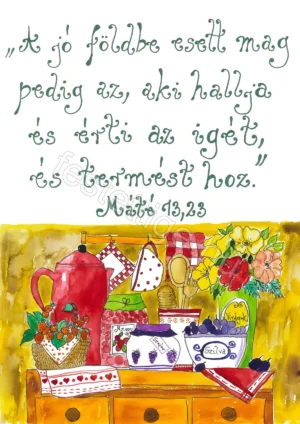 „A jó földbe esett mag
pedig az, aki hallja
és érti az igét,
és termést hoz.”
Máté 13,23
Szilva